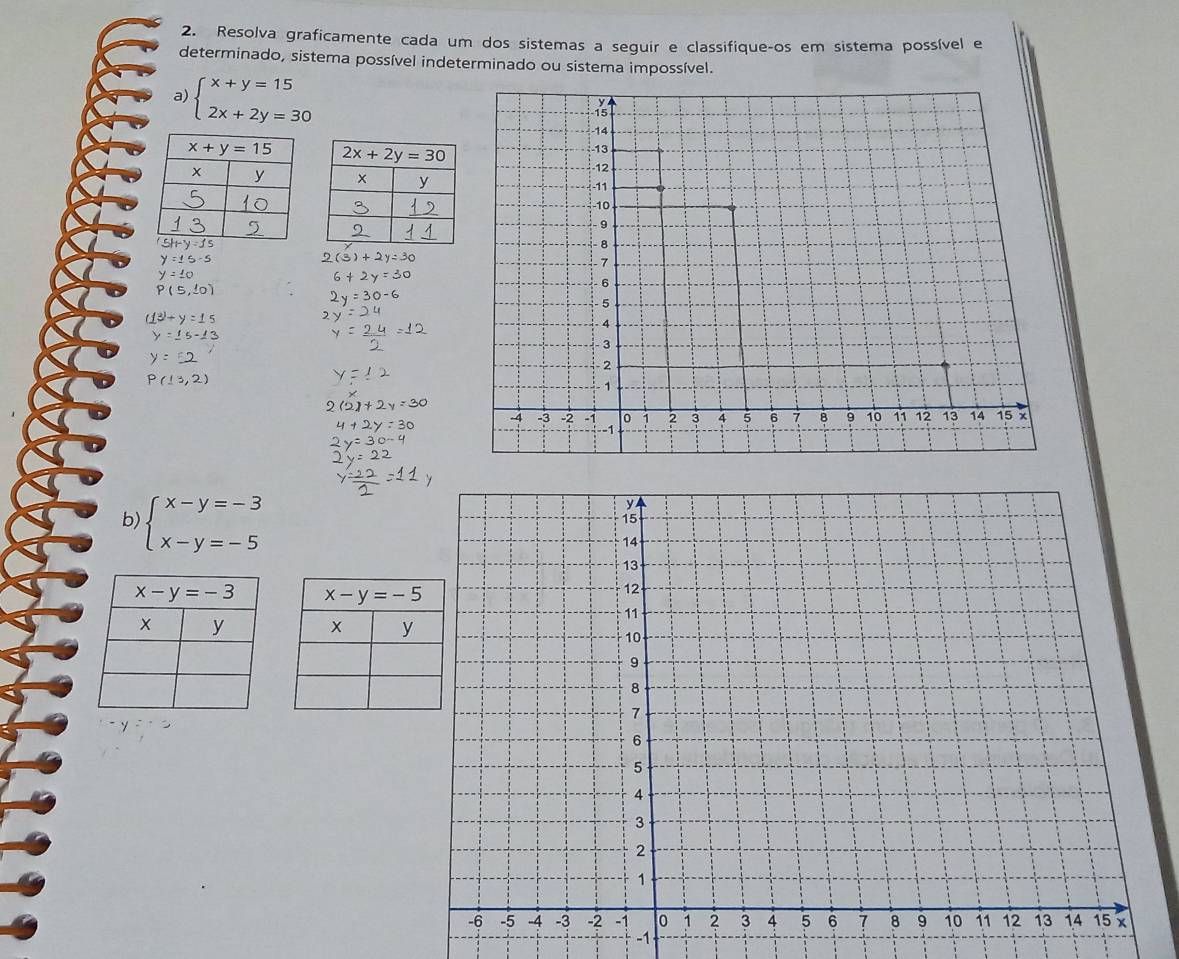 2. Resolva graficamente cada um dos sistemas a seguir e classifique-os em sistema possível e
determinado, sistema possível indeterminado ou sistema impossível.
a) { x + y = 15
2x + 2y = 30
x + y = 15
x y
5 10
13 2
(5)+y=15
y=15-5
y=10
P(5,10)
(13)+y=15
y=15-13
y=2
P(13,2)
2x + 2y = 30
x y
3 12
2 11
2(3)+2y=30
6+2y=30
2y=30-6
2y=24
y=24/2=12
y=12
2(2)+2y=30
4+2y=30
2y=30-4
2y=22
y=22/2=11
y
15
14
13
12
11
10
9
8
7
6
5
4
3
2
1
-4 -3 -2 -1 0 1 2 3 4 5 6 7 8 9 10 11 12 13 14 15 x
-1
b) { x − y = − 3
x − y = − 5
x − y = − 3
x y
x − y = − 5
x y
y
15
14
13
12
11
10
9
8
7
6
5
4
3
2
1
-6 -5 -4 -3 -2 -1 0 1 2 3 4 5 6 7 8 9 10 11 12 13 14 15 x
-1